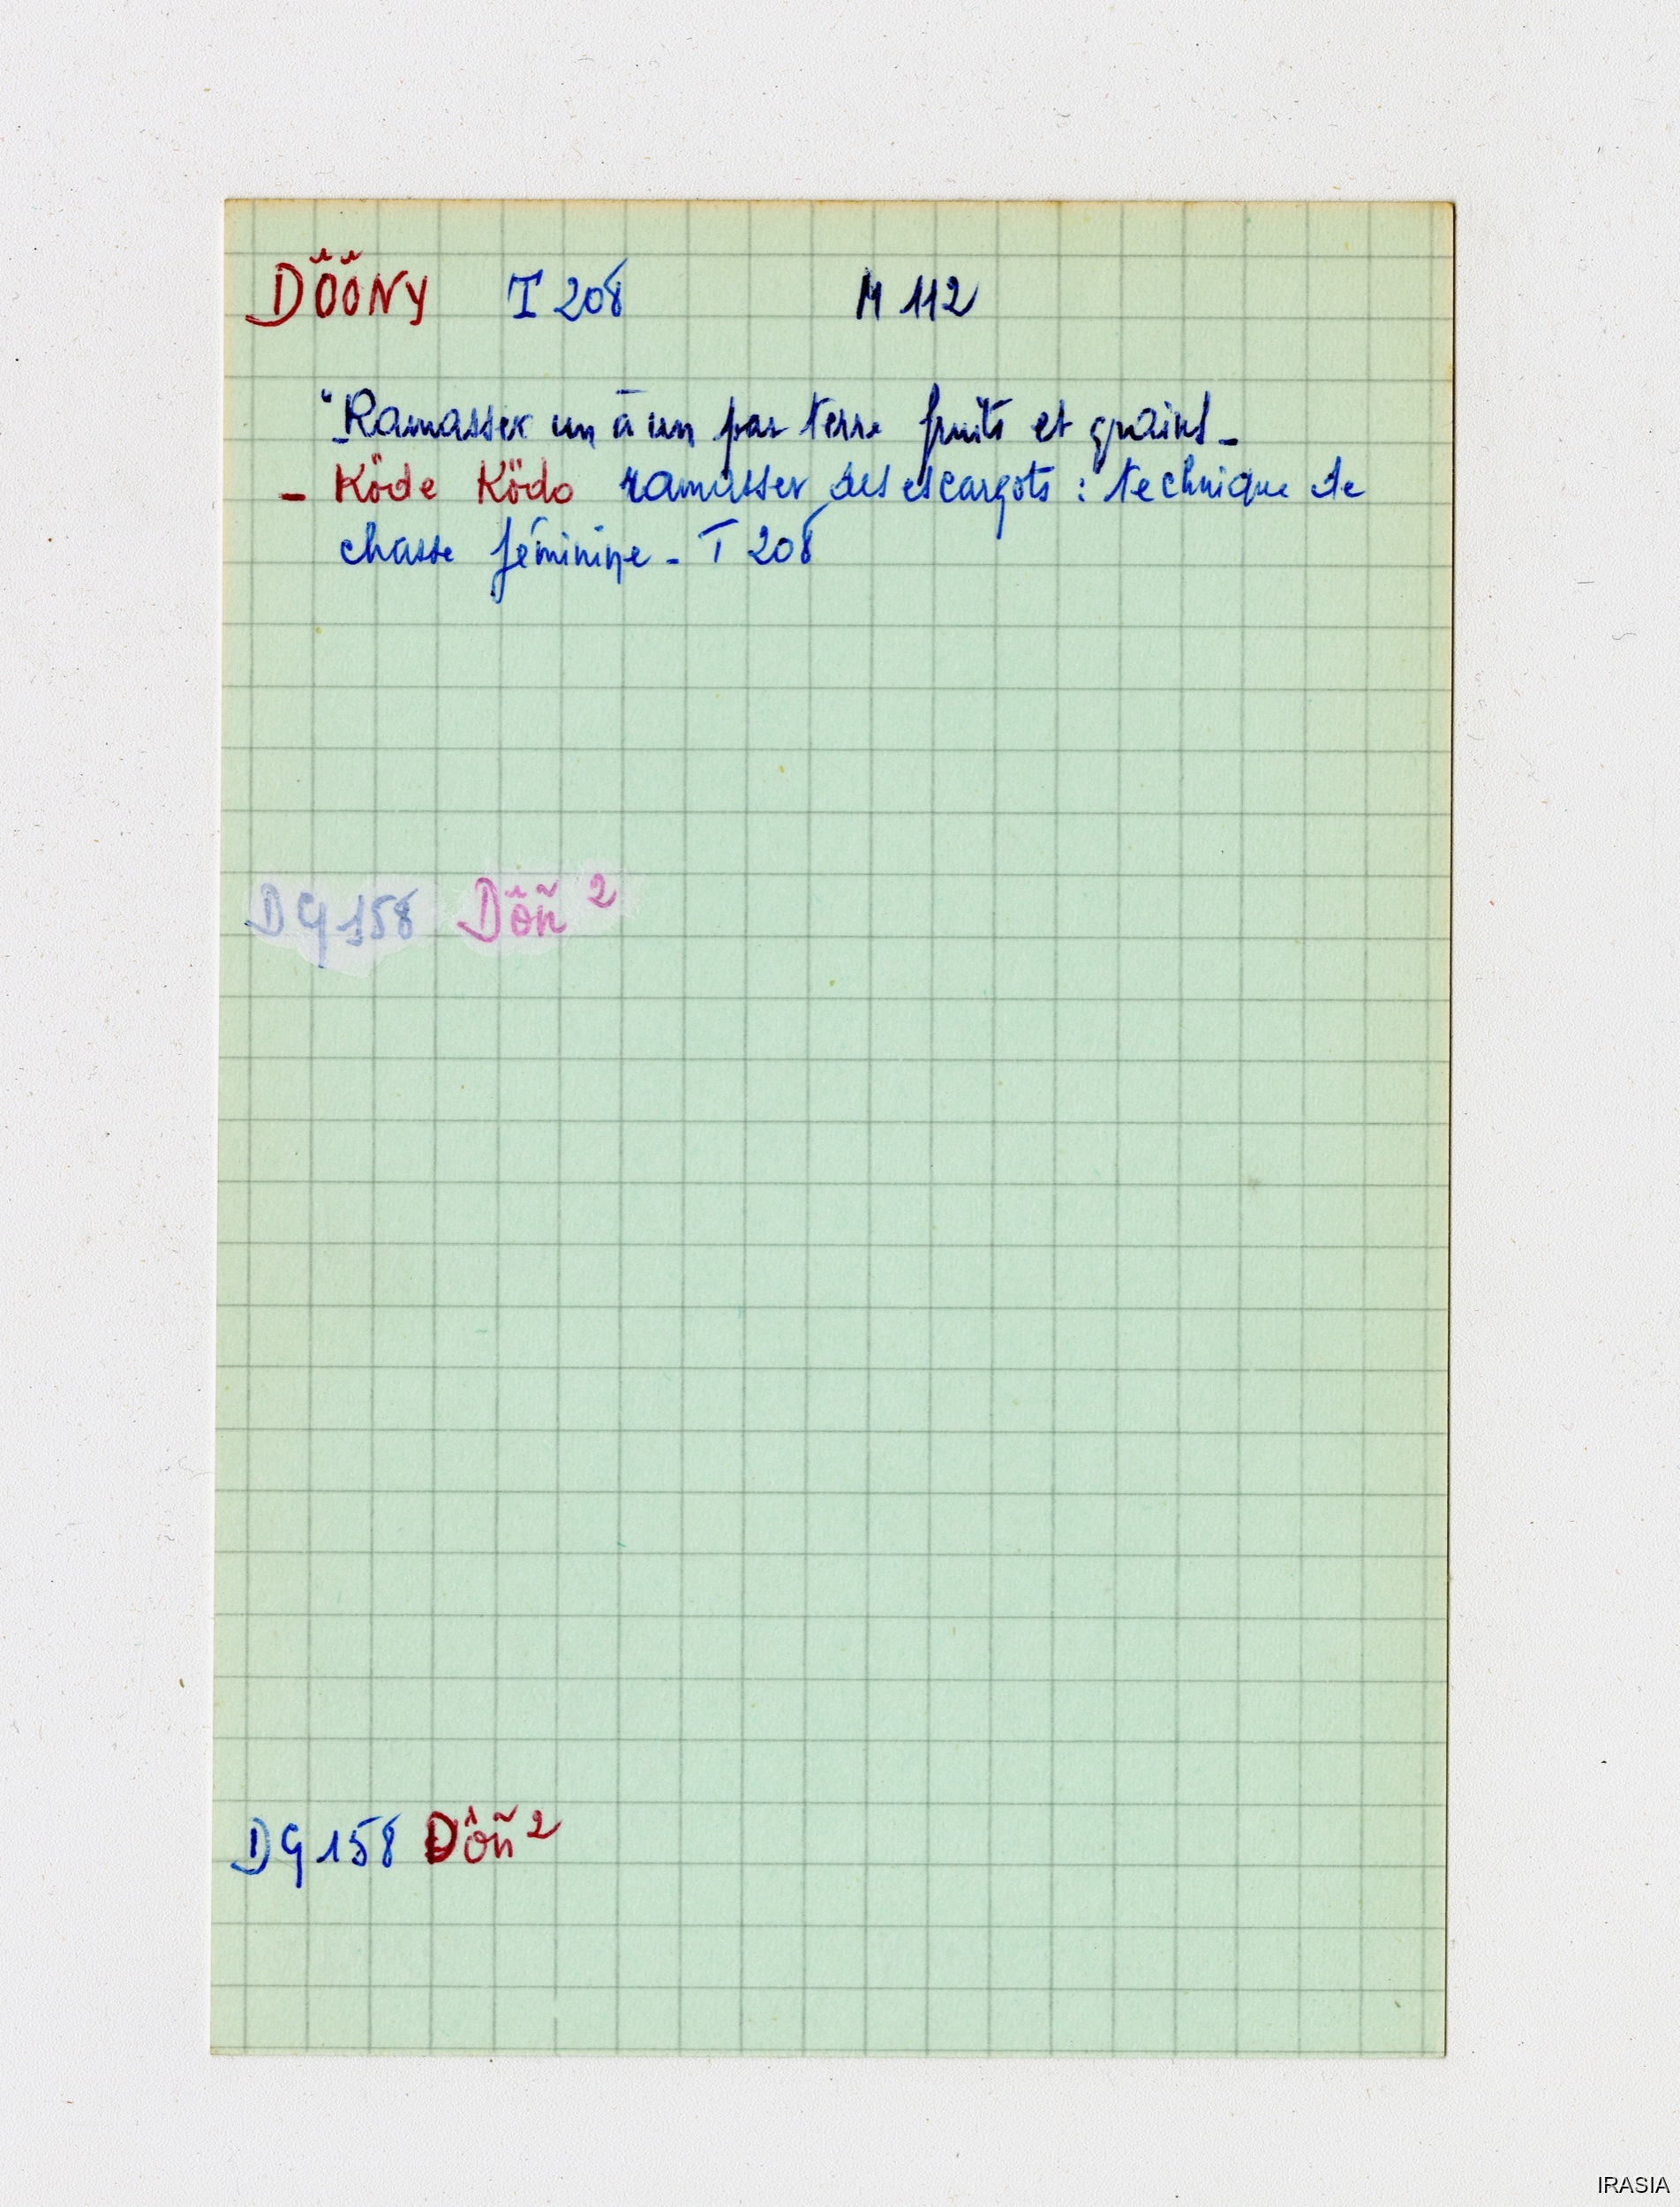 DÖÖNY T 208 M 112
"Ramasser un à un par terre fruits et grains -
- Köde Ködo ramasser des escargots : technique de
chasse féminine - T 208
DG 158 Dôñ 2
DG 158 Dôñ 2
IRASIA